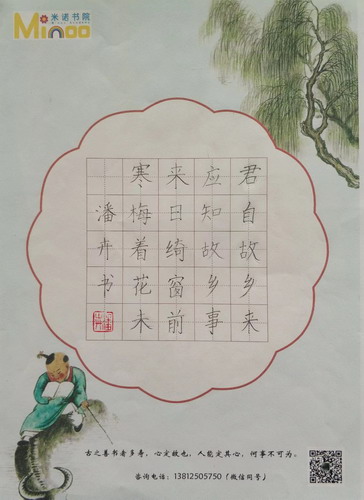 米诺书院
Minoo
君自故乡来
应知故乡事
来日绮窗前
寒梅着花未
潘卉书
古之善书者多寿，心定故也，人能定其心，何事不可为。
咨询电话：13812505750（微信同号）